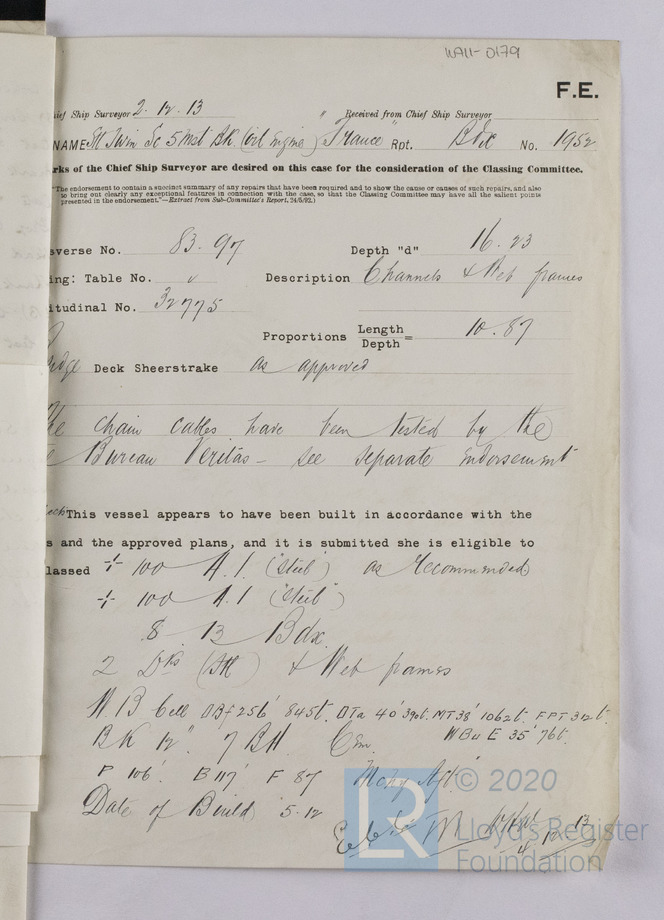 WAll-0179
F.E.
ief Ship Surveyor 2.12.13 " Received from Chief Ship Surveyor
NAME St Twin Sc 5 Mst BK. (oil Engine) "France" Rpt. Bdx No. 1952
rks of the Chief Ship Surveyor are desired on this case for the consideration of the Classing Committee.
"The endorsement to contain a succinct summary of any repairs that have been required and to show the cause or causes of such repairs, and also
to bring out clearly any exceptional features in connection with the case, so that the Classing Committee may have all the salient points
presented in the endorsement."—Extract from Sub-Committee's Report, 24/5/92.)
sverse No. 83.97 Depth "d" 16.23
ing: Table No. Description Channels & Web frames
itudinal No. 32775
Proportions Length/Depth = 10.87
idge Deck Sheerstrake as approved
The chain cables have been tested by the
Bureau Veritas - see separate endorsement
This vessel appears to have been built in accordance with the
s and the approved plans, and it is submitted she is eligible to
lassed 100 A.1. (Steel) as Recommended
100 A.1 (Steel)
8 13 Bdx
2 Dks (Stl) & Web frames
W.B Cell DBf 256' 845t. DTa 40' 390t. MT 38' 1062t. FPT 312t.
BK 12". 7 BH. Cem. WBu E 35' 76t.
P 106' B 117' F 87 Mchy Aft.
Date of Build 5.12
12.13
© 2020
LR
Lloyd's Register
Foundation